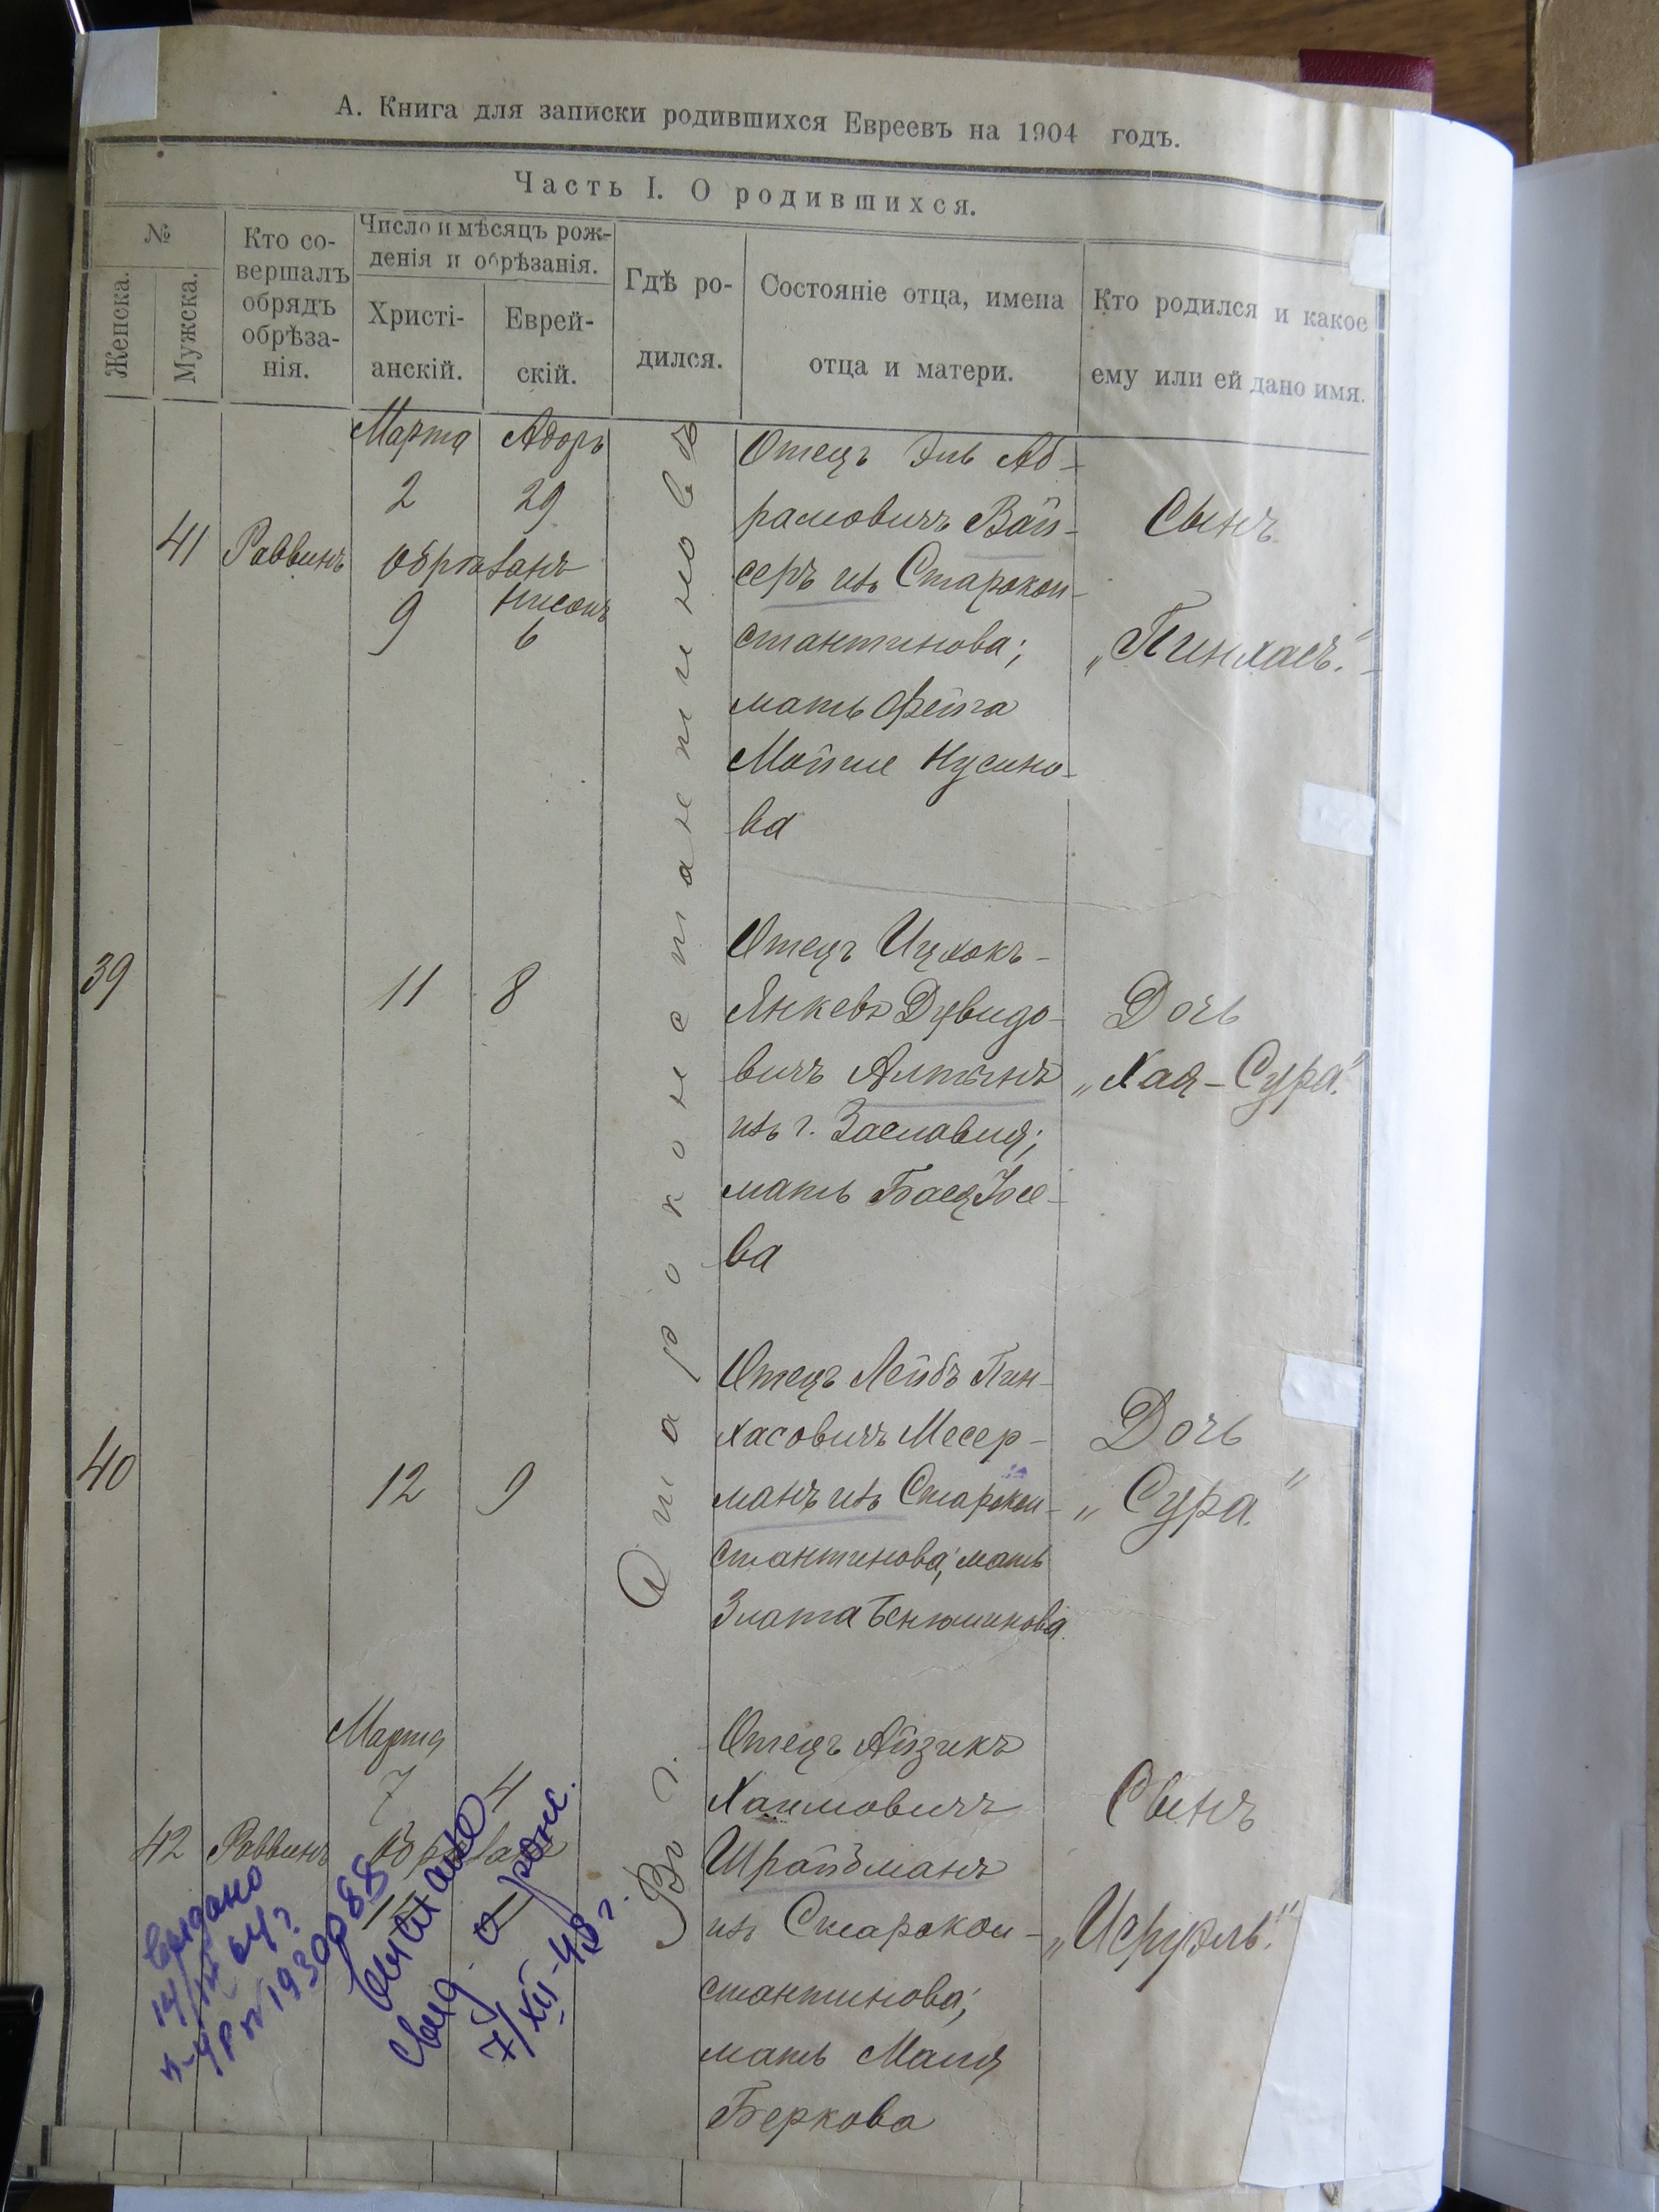 А. Книга для записки родившихся Евреевъ на 1904 годъ.
Часть I. О родившихся.
№
Женска.
Мужска.
Кто со-
вершалъ
обрядъ
обрѣза-
нія.
Число и мѣсяцъ рож-
денія и обрѣзанія.
Христі-
анскій.
Еврей-
скій.
Гдѣ ро-
дился.
Состояніе отца, имена
отца и матери.
Кто родился и какое
ему или ей дано имя.
Во г. Староконстантиновѣ
41
Раввинъ
Марта
2
Адоръ
29
обрѣзанъ
9
Нисонъ
6
Отецъ Эль Аб-
рамовичъ Вай-
серъ изъ Старокон-
стантинова;
мать Фейга
Мойше Нусино-
ва
Сынъ
„Пинхасъ."
39
11
8
Отецъ Ицхокъ-
Янкевъ Дувидо-
вичъ
изъ г. Заславля;
мать Бася
ва
Дочь
„Хая-Сура."
40
12
9
Отецъ Лейбъ Пин-
хасовичъ Месер-
манъ изъ Старокон-
стантинова; мать
Злата Бенюминова
Дочь
„Сура."
42
Раввинъ
Марта
7
4
обрѣзанъ
Отецъ Айзикъ
Хаимовичъ
Шрайбманъ
изъ Старокон-
стантинова;
мать Маля
Беркова
Сынъ
„Исруэль."
Выдано
свид. о
7/XII-48г.